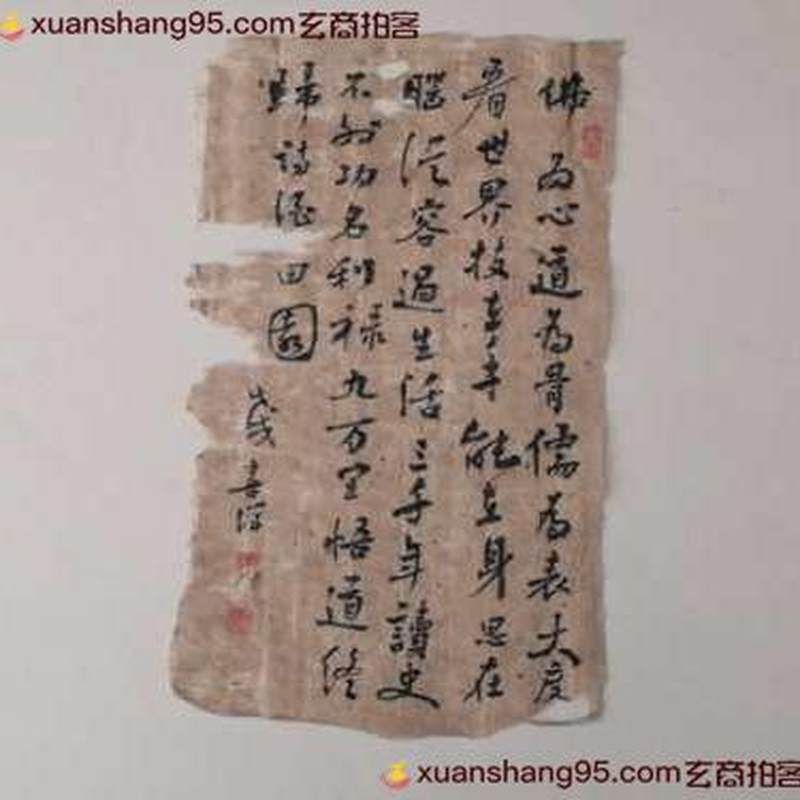 xuanshang95.com玄商拍客
佛為心道為骨儒為表大度
看世界技在手能立身思在
腦從容過生活三千年讀史
不外功名利祿九万里悟道終
歸詩酒田園
書
xuanshang95.com玄商拍客